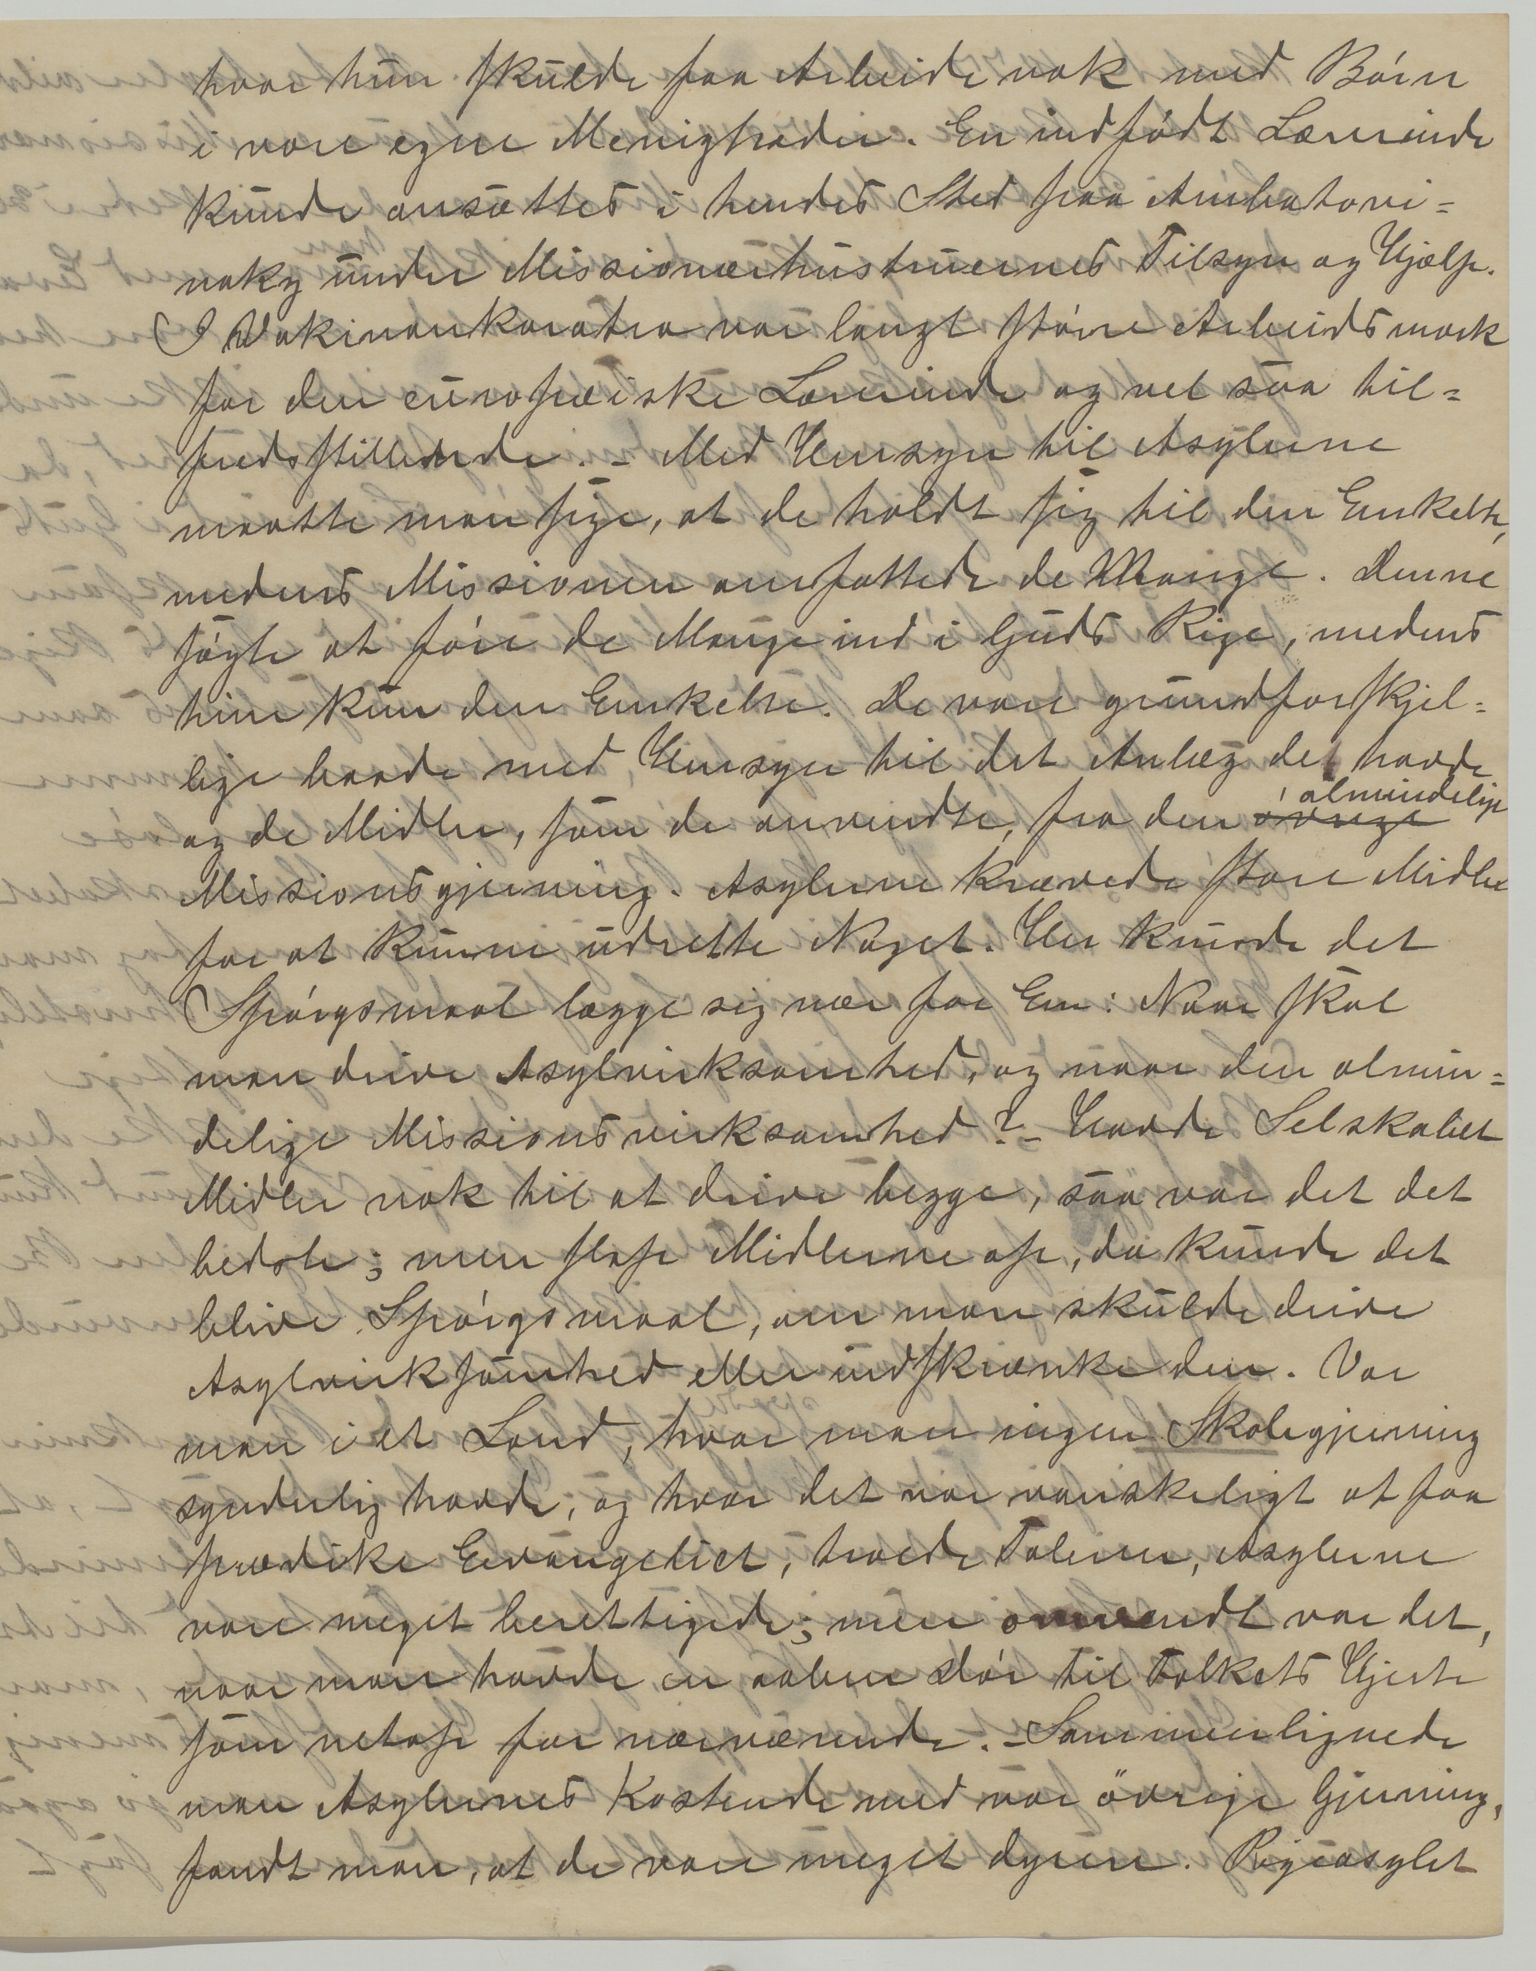 hvor hun skulde faa Arbeide nok med Börn
i vore egne Menigheder. En indfödt Lærerinde
kunde ansættes i hendes Sted paa Ambatovi=
naky under Missionærhustruernes Tilsyn og Hjælp.
I Vakinankaratra var langt större Arbeidsmark
for den europæiske Lærerinde og vel saa til=
fredsstillende. – Med Hensyn til Asylerne
maatte man sige, at de holdt sig til den Enkelte,
medens Missionen omfattede de Mange. Denne
sögte at före de Mange ind i Guds Rige, medens
hine kun den Enkelte. De vare grundforskjel=
lige baade med Hensyn til det Anlæg det havde
og de Midler, som de anvendte, fra den övrige almindelige
Missionsgjerning. Asylerne krævede store Midler
for at kunne udrette Noget. Her kunde det
Spörgsmaal lægge sig nær for En: Naar skal
man drive Asylvirksomhed, og naar den almin=
delige Missionsvirksomhed? – Havde Selskabet
Midler nok til at drive begge, saa var det det
bedste; men slap Midlerne op, da kunde det
blive Spörgsmaal, om man skulde drive
Asylvirksomhed eller indskrænke den. Var
man i et Land, hvor man ingen Skolegjerning
synderlig havde, og hvor det var vanskeligt at faa
prædike Evangeliet, troede Taleren, Asylerne
vare meget berettigede; men omvendt var det,
naar man havde en aaben Dör til Folkets Hjerte
som netop for nærværende. – Sammenlignede
man Asylernes Kostende med vor övrige Gjerning,
fandt man, at de vare meget dyre. Pigeasylet